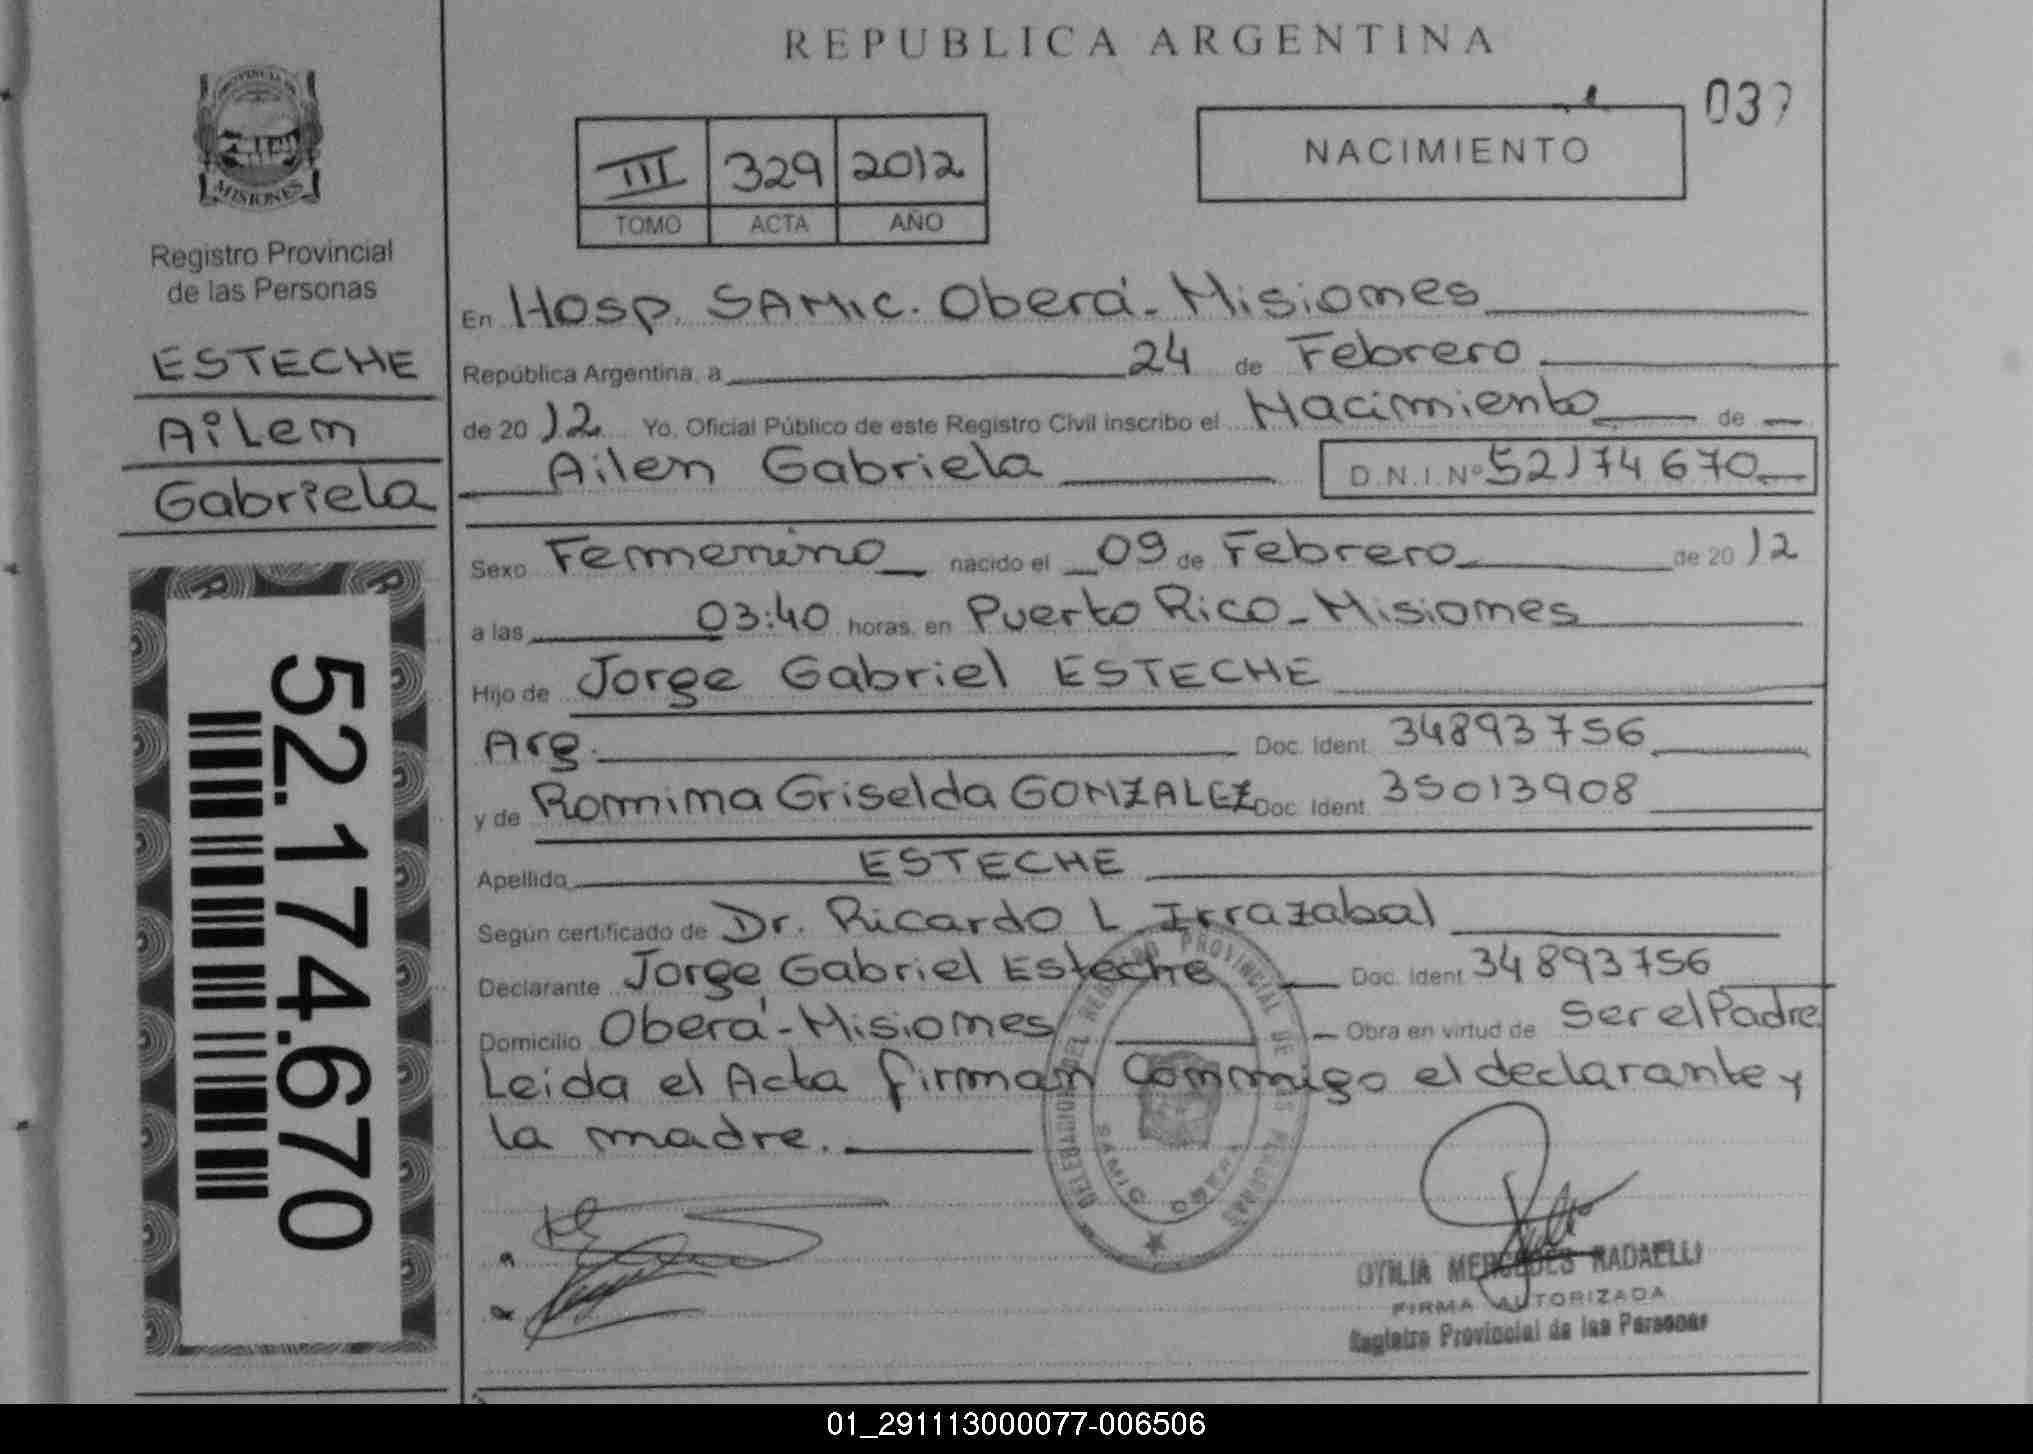 REPUBLICA ARGENTINA
PROVINCIA DE
MISIONES
Registro Provincial
de las Personas
ESTECHE
Ailen
Gabriela
52.174.670
III 329 2012
TOMO ACTA AÑO
NACIMIENTO
En Hosp. SAMIC. Oberá - Misiones
República Argentina, a 24 de Febrero
de 20 12 Yo, Oficial Público de este Registro Civil inscribo el Nacimiento de
Ailen Gabriela D.N.I. Nº 52174670
Sexo Femenino nacido el 09 de Febrero de 20 12
a las 03:40 horas, en Puerto Rico - Misiones
Hijo de Jorge Gabriel ESTECHE
Arg. Doc. Ident. 34893756
y de Romina Griselda GONZALEZ Doc. Ident. 35013908
Apellido ESTECHE
Según certificado de Dr. Ricardo L Irrazabal
Declarante Jorge Gabriel Esteche Doc. Ident. 34893756
Domicilio Oberá - Misiones Obra en virtud de Ser el Padre
Leida el Acta firman conmigo el declarante y
la madre.
DELEGACION DEL REGISTRO PROVINCIAL DE LAS PERSONAS
SAMIC OBERA
OTILIA MERCEDES RADAELLI
FIRMA AUTORIZADA
Registro Provincial de las Personas
01_291113000077-006506